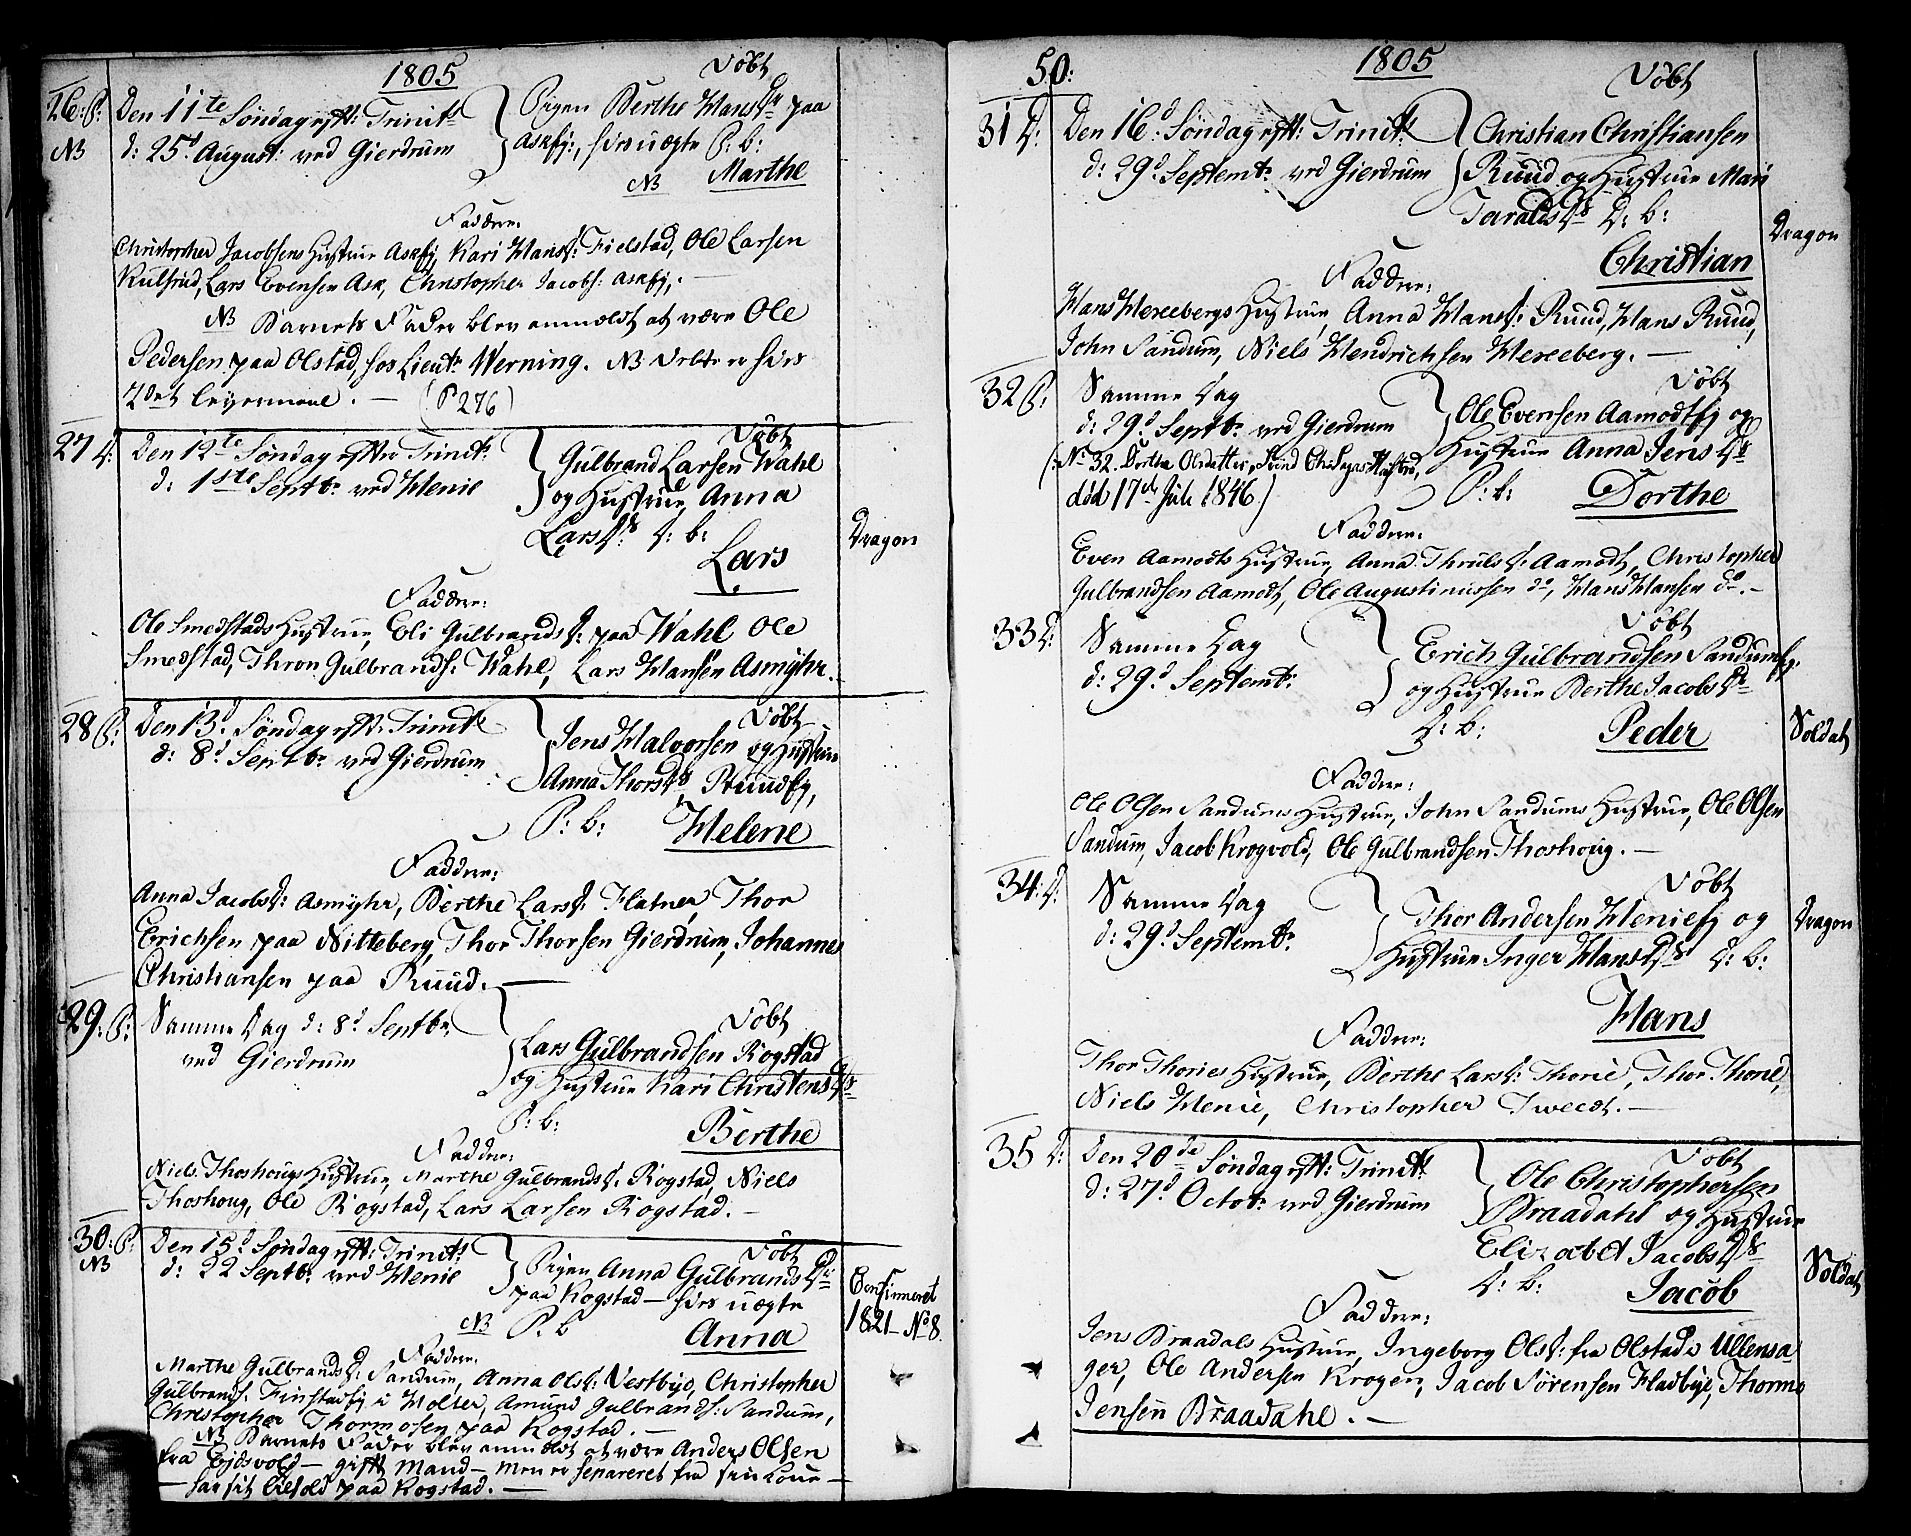 1805
26: P:
NB
Den 11te Søndag efft: Trinits
d: 25d August: ved Gierdrum
Døbt
Pigen Berthe Hans Dr paa
Askej:, hires uægte P: b:
NB Marthe
Faddere:
Christopher Jacobsens Hustrue Askej, Kari Hansd: Fielstad, Ole Larsen
Kulsrud, Lars Evensen Ask, Christopher Jacobs: Askej,. —
NB Barnets Fader blev anmeldt at være Ole
Pedersen paa Olstad, hos Lieutn Werning. NB dette er hires
2det leyermaal. — (P 276)
27 D:
Den 12te Søndag efter Trinit:
d: 1ste Septbr ved Henie
Døbt
Gulbrand Larsen Wahl
og Hustrue Anna
Lars Ds D: b:
Lars
Dragon
Faddere:
Ole Smedstads Hustrue, Eli Gulbrandsd: paa Wahl Ole
Smedstad, Thron Gulbrands: Wahl, Lars Hansen Asmyhr.
28 P:
Den 13d Søndag efft: Trinit:
d: 8d Septbr ved Gierdrum
Døbt
Jens Halvorsen og Hustrue
Anna Thors Ds, Ruudej,
P: b: Helene
Faddere:
Anna Jacobsd: Asmyhr, Berthe Larsd: Flatner, Thor
Erichsen paa Nitteberg, Thor Thorsen Gierdrum, Johannes
Christiansen paa Ruud. —
29: P:
Samme Dag d: 8d Septbr
ved Gierdrum
Døbt
Lars Gulbrandsen Rogstad
og Hustrue Kari Christens Ds
P: b: Berthe
Faddere:
Niels Thoshougs Hustrue, Marthe Gulbrandsd: Rogstad, Niels
Thoshoug, Ole Rogstad, Lars Larsen Rogstad. —
30: P:
NB
Den 15d Søndag efft: Trinits
d: 22 Septbr ved Henie
Døbt
Pigen Anna Gulbrands Dr
paa Rogstad — hires uægte
NB P. b Anna
Confirmeret
1821 — No 8.
Faddere:
Marthe Gulbrandsd: Sandum, Anna Olsd: Vestbye, Christopher
Gulbrands: Finstadej i Holter, Amund Gulbrands: Sandum,
Christopher Thormosen paa Rogstad. —
NB Barnets Fader blev anmeldt at være Anders Olsen
fra Ejdsvold — gifft Mand — men er separeret fra sin Kone —
— har sit tilhold paa Rogstad. —
50:
1805
31 D:
Den 16d Søndag efft: Trinit:
d: 29d Septembr ved Gierdrum
Døbt
Christian Christiansen
Ruud og Hustrue Mari
Taralds Ds D: b:
Christian
Dragon
Faddere:
Hans Hexebergs Hustrue, Anna Hansd: Ruud, Hans Ruud,
John Sandum, Niels Hendrichsen Hexeberg. —
32 P:
Samme Dag
d: 29d Septbr ved Gierdrum
(: No 32. Dorthe Olsdatter,
død 17de Juli 1846.)
Døbt
Ole Evensen Aamodtej og
Hustrue Anna Jens Ds
P: b: Dorthe
Faddere:
Even Aamodts Hustrue, Anna Thrulsd: Aamodt, Christopher
Gulbrandsen Aamodt, Ole Augustinussen do, Hans Hansen do. —
33 D:
Samme Dag
d: 29d Septembr
Døbt
Erich Gulbrandsen Sandumej.
og Hustrue Berthe Jacobs Dr
D: b: Peder
Soldat
Faddere:
Ole Olsen Sandums Hustrue, John Sandums Hustrue, Ole Olsen
Sandum, Jacob Krogvold, Ole Gulbrandsen Thoshoug. —
34: D:
Samme Dag
d: 29d Septembr
Døbt
Thor Andersen Henieej og
Hustrue Inger Hans Ds D: b:
Hans
Dragon
Faddere:
Thor Thories Hustrue, Berthe Larsd: Thorie, Thor Thorie,
Niels Henie, Christopher Tweedt. —
35 D:
Den 20de Søndag efft: Trinits
d: 27d Octobr ved Gierdrum
Døbt
Ole Christophersen
Braadahl og Hustrue
Elizabet Jacobs Ds
D: b: Jacob
Soldat
Faddere:
Jens Braadals Hustrue, Ingeborg Olsd: fra Olstad i Ullensa-
ger, Ole Andersen Krogen, Jacob Sørensen Fladbye, Thorms
Jensen Braadahl. —